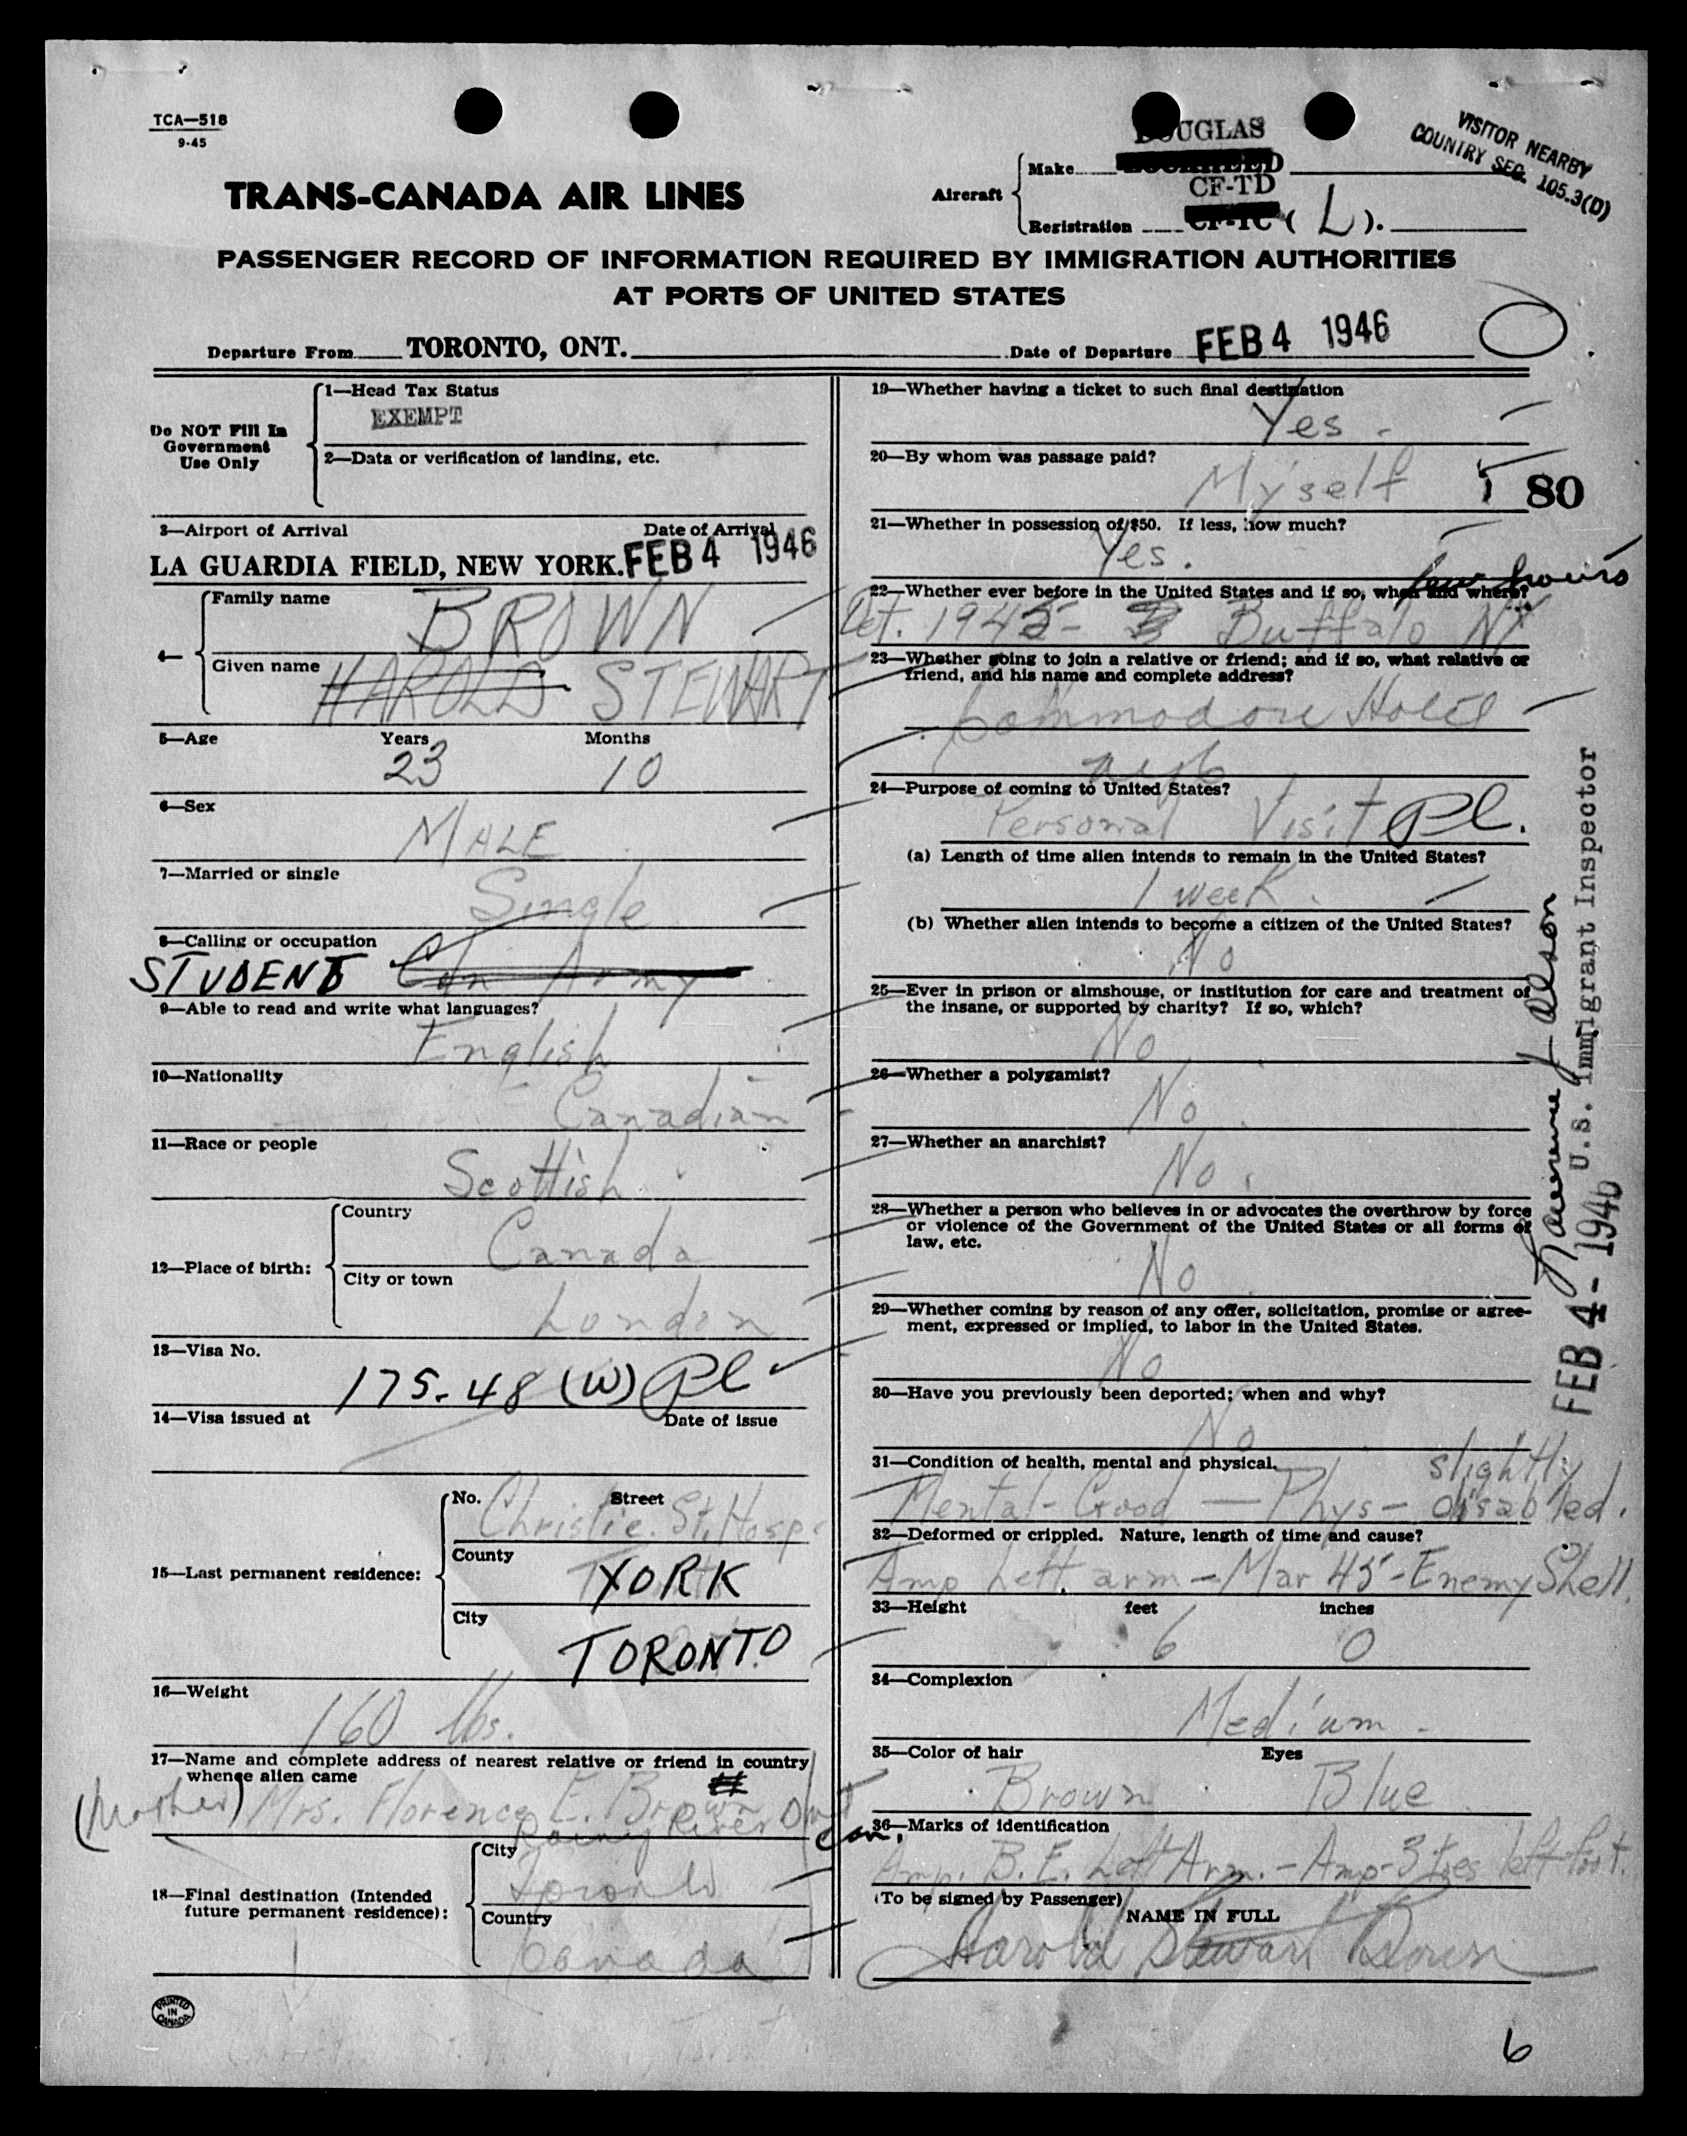 TCA—518
9-45
VISITOR NEARBY
COUNTRY SEC. 105.3(D)
DOUGLAS
TRANS-CANADA AIR LINES
Aircraft
Make
LOCKHEED
CF-TD
Registration CF-TC ( L ).
PASSENGER RECORD OF INFORMATION REQUIRED BY IMMIGRATION AUTHORITIES
AT PORTS OF UNITED STATES
Departure From TORONTO, ONT.
Date of Departure FEB 4 1946
Do NOT Fill In
Government
Use Only
1—Head Tax Status
EXEMPT
2—Data or verification of landing, etc.
3—Airport of Arrival Date of Arrival
LA GUARDIA FIELD, NEW YORK. FEB 4 1946
4—
Family name
BROWN
Given name HAROLD STEWART
5—Age Years Months
23 10
6—Sex
MALE
7—Married or single
Single
8—Calling or occupation
STUDENT Cdn Army
9—Able to read and write what languages?
English
10—Nationality
Canadian
11—Race or people
Scottish
12—Place of birth:
Country
Canada
City or town
London
13—Visa No.
175.48 (W) PL
14—Visa issued at Date of issue
15—Last permanent residence:
No. Street
Christie. St. Hosp.
County
YORK
City
TORONTO
16—Weight
160 lbs.
17—Name and complete address of nearest relative or friend in country
whence alien came
(Mother) Mrs. Florence E. Brown
Rainy River Ont
Can.
18—Final destination (Intended
future permanent residence):
City
Toronto
Country
Canada
PRINTED
IN
CANADA
19—Whether having a ticket to such final destination
Yes -
20—By whom was passage paid?
Myself
80
21—Whether in possession of $50. If less, how much?
Yes.
few hours
22—Whether ever before in the United States and if so, when and where?
Oct. 1945- Buffalo NY
23—Whether going to join a relative or friend; and if so, what relative or
friend, and his name and complete address?
Commodore Hotel
NYC
24—Purpose of coming to United States?
Personal Visit PL.
(a) Length of time alien intends to remain in the United States?
1 week.
(b) Whether alien intends to become a citizen of the United States?
No
25—Ever in prison or almshouse, or institution for care and treatment of
the insane, or supported by charity? If so, which?
No
26—Whether a polygamist?
No
27—Whether an anarchist?
No.
28—Whether a person who believes in or advocates the overthrow by force
or violence of the Government of the United States or all forms of
law, etc.
No
29—Whether coming by reason of any offer, solicitation, promise or agree-
ment, expressed or implied, to labor in the United States.
No
30—Have you previously been deported; when and why?
No
31—Condition of health, mental and physical.
slightly
Mental - Good — Phys - disabled.
32—Deformed or crippled. Nature, length of time and cause?
Amp Left arm - Mar 45 - Enemy Shell.
33—Height feet inches
6 0
34—Complexion
Medium -
35—Color of hair Eyes
Brown Blue
36—Marks of identification
Amp. B.E. Left Arm. - Amp - 3 toes left foot.
(To be signed by Passenger)
NAME IN FULL
Harold Stewart Brown
U.S. Immigrant Inspector
FEB 4 - 1946
6